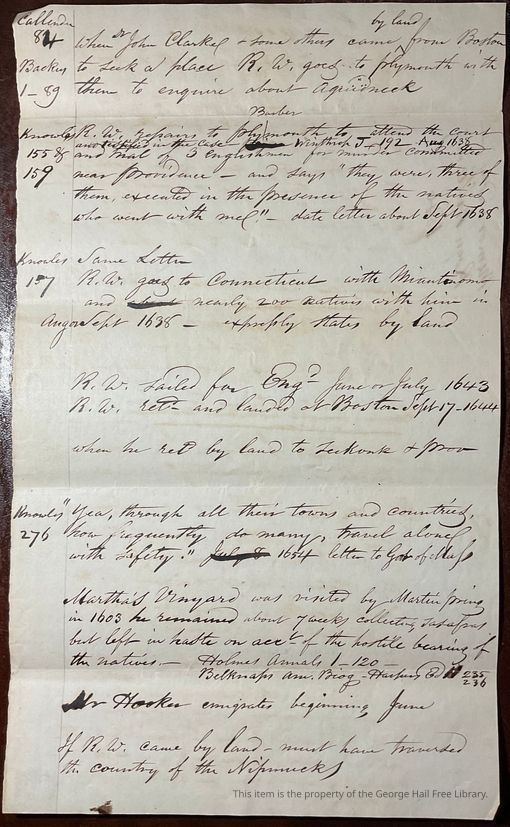 Callender by land
84 when Dr John Clarke & some others came from Boston
Backus to seek a place R. W. goes to Plymouth with
1-89 them to enquire about Aquidneck
Barber
Knowles R. W. repairs to Plymouth to attend the court
and testified in the case Winthrop J-192 Aug 1638
155 & and trial of 3 englishmen for murder committed
159 near Providence – and says "they were, three of
them, executed in the presence of the natives
who went with me" – date letter about Sept 1638
Knowles Same Letter
157 R. W. goes to Connecticut with Miantinomo
and nearly 200 natives with him in
Aug or Sept 1638 – expressly states by land
R. W. sailed for Engd June or July 1643
R. W. retd and landed at Boston Sept 17-1644
when he retd by land to Seekonk & Prov
Knowles "Yea, through all their towns and countries,
276 how frequently do many, travel alone
with safety." July 8 1654 letter to Gov of Mass
Martha's Vinyard was visited by Martin Pring
in 1603 he remained about 7 weeks collecting sassafras
but left in haste on acct of the hostile bearing of
the natives. – Holmes Annals 1-120 –
Belknaps Am. Biog – Harpers Ed 235
236
Mr Hooker emigrates beginning June
If R. W. came by land – must have traversed
the country of the Nipmucks
This item is the property of the George Hail Free Library.